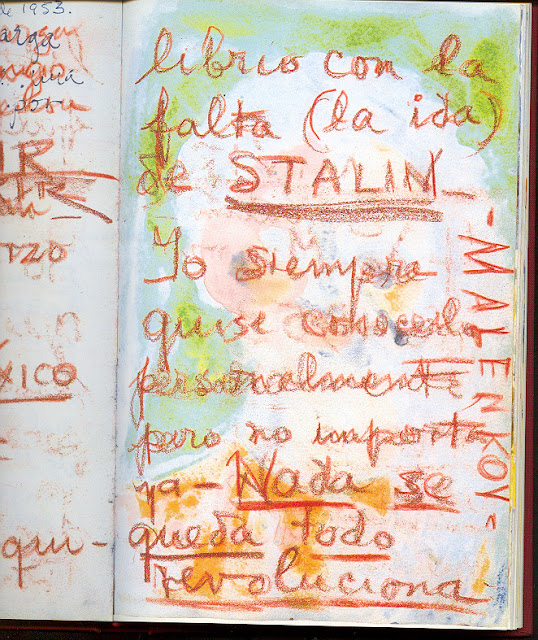 de 1953.
XICO
qui-
librio con la
falta (la ida)
de STALIN_
Yo siempre
quise conocerlo
personalmente
pero no importa
ya - Nada se
queda todo
revoluciona
-MALENKOV-